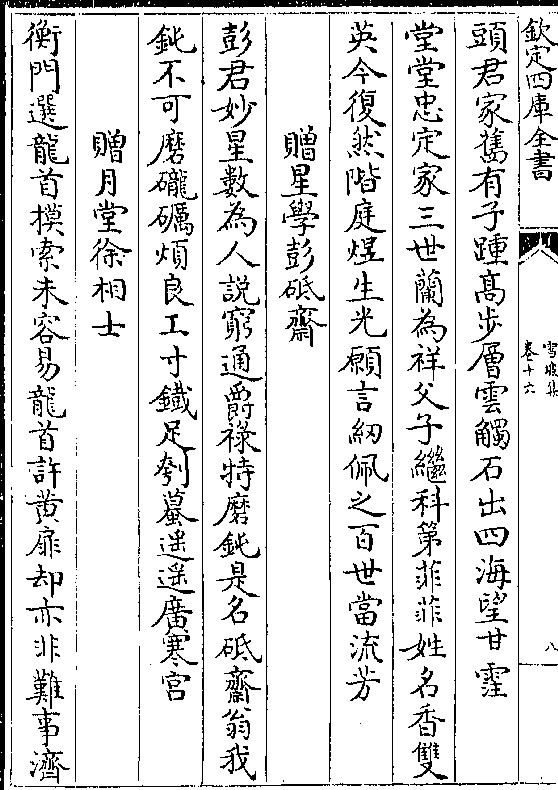 欽定四庫全書
雪坡集
卷十六
八
頭君家舊有子踵髙歩層雲觸石出四海望甘霔
堂堂忠定家三世蘭為祥父子繼科第菲菲姓名香雙
英今復然階庭煜生光願言紉佩之百世當流芳
贈星學彭砥齋
彭君妙星數為人説窮通爵禄特磨鈍是名砥齋翁我
鈍不可磨礲礪煩良工寸鐵足刳蟇遥遥廣寒宫
贈月堂徐相士
衡門選龍首摸索未容易龍首許黄扉却亦非難事濟